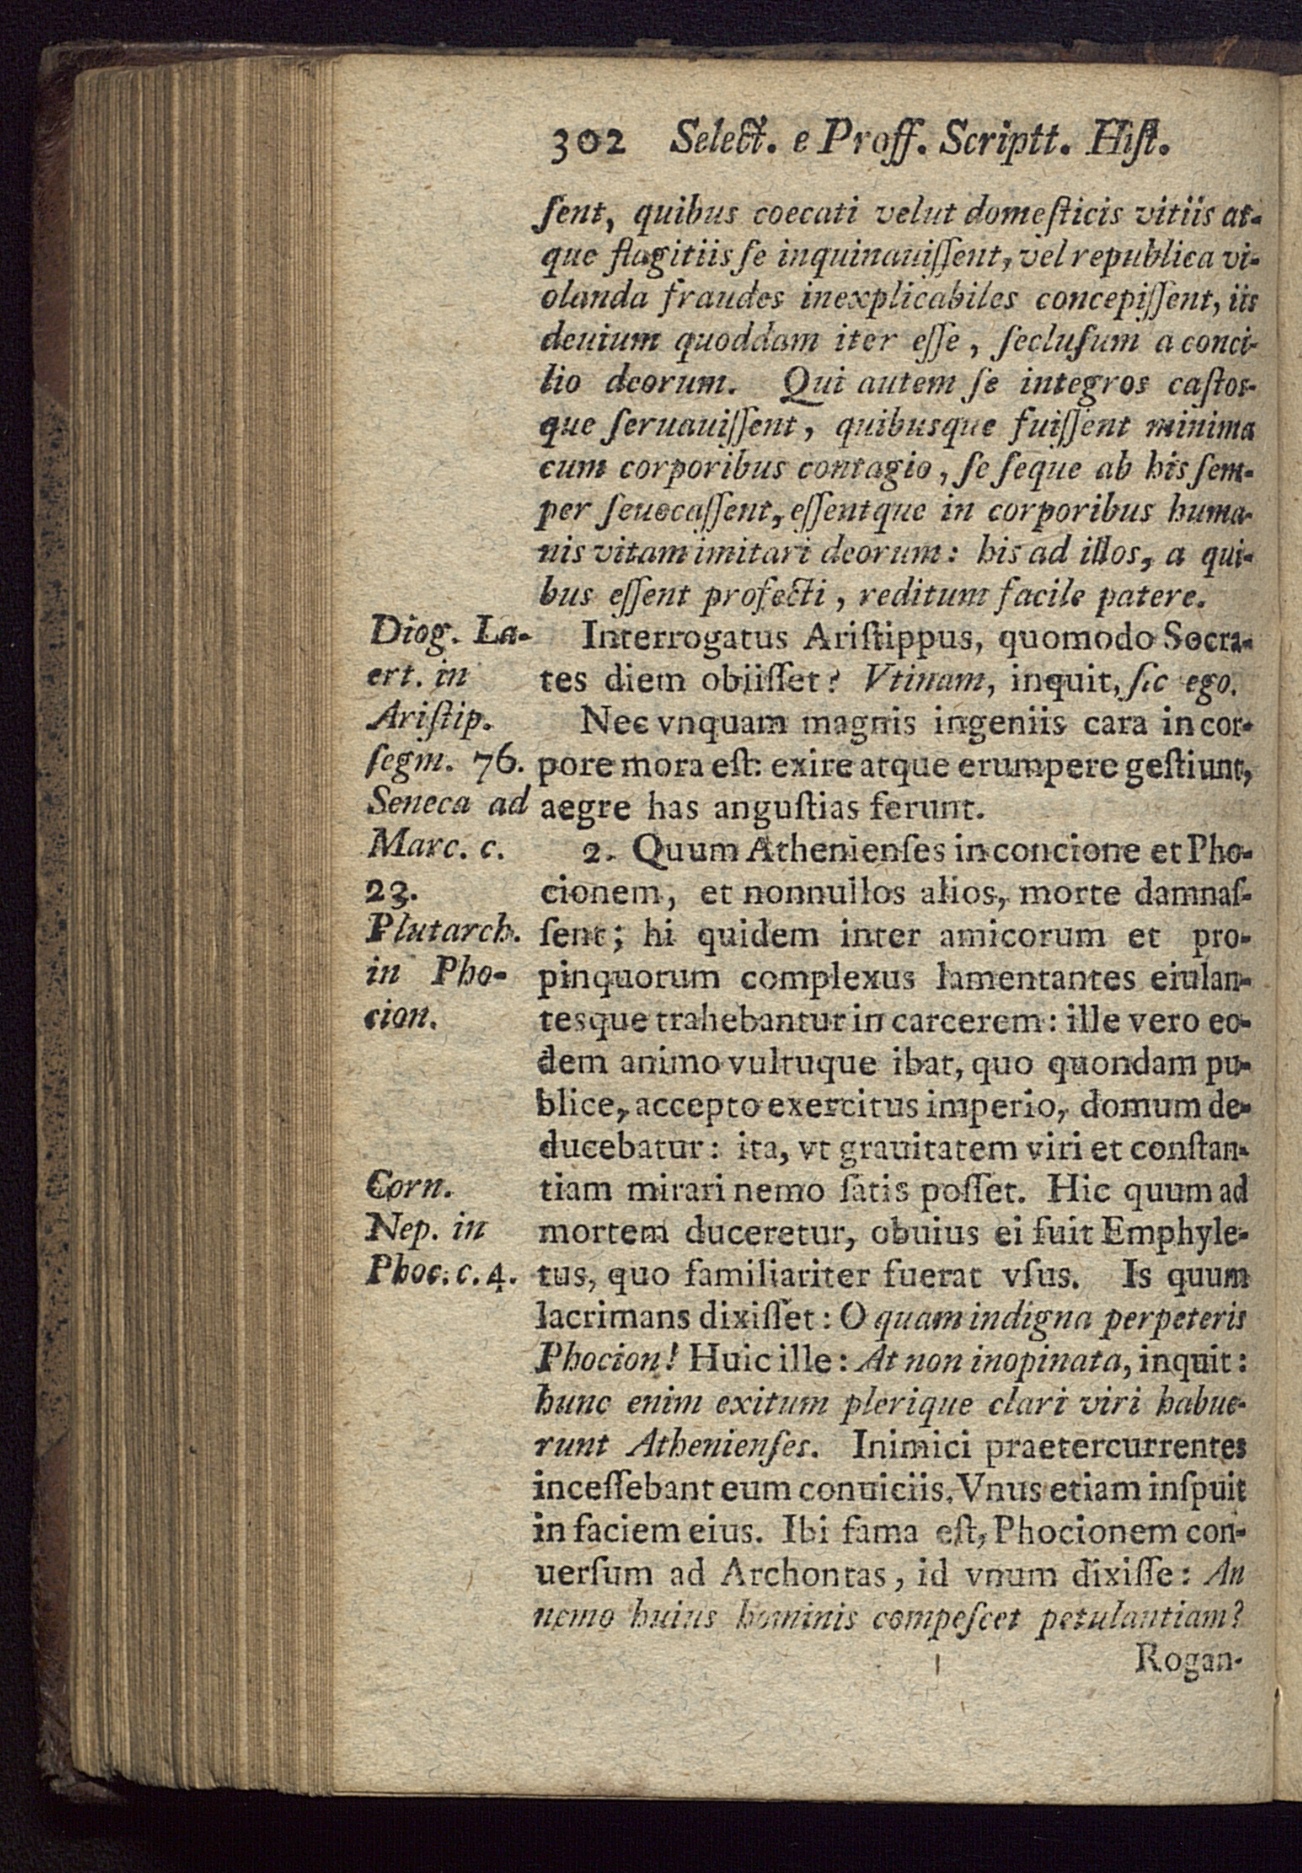 302 Select. e Proff. Scriptt. Hiſt.
ſent, quibus coecati velut domeſticis vitiis at-
que flagitiis ſe inquinauiſſent, vel republica vi-
olanda fraudes inexplicabiles concepiſſent, iis
deuium quoddam iter eſſe, ſecluſum a conci-
lio deorum. Qui autem ſe integros caſtos-
que ſeruauiſſent, quibusque fuiſſent minima
cum corporibus contagio, ſe ſeque ab his ſem-
per ſeuocaſſent, eſſentque in corporibus huma-
nis vitam imitari deorum: his ad illos, a qui-
bus eſſent profecti, reditum facile patere.
Diog. La-
ert. in
Ariſtip.
ſegm. 76.
Interrogatus Ariſtippus, quomodo Socra-
tes diem obiiſſet? Vtinam, inquit, ſic ego.
Seneca ad
Marc. c.
23.
Nec vnquam magnis ingeniis cara in cor-
pore mora eſt: exire atque erumpere geſtiunt,
aegre has anguſtias ferunt.
Plutarch.
in Pho-
cion.
2. Quum Athenienſes in concione et Pho-
cionem, et nonnullos alios, morte damnaſ-
ſent; hi quidem inter amicorum et pro-
pinquorum complexus lamentantes eiulan-
tesque trahebantur in carcerem: ille vero eo-
dem animo vultuque ibat, quo quondam pu-
blice, accepto exercitus imperio, domum de-
ducebatur: ita, vt grauitatem viri et conſtan-
Corn.
Nep. in
Phoc. c. 4.
tiam mirari nemo ſatis poſſet. Hic quum ad
mortem duceretur, obuius ei fuit Emphyle-
tus, quo familiariter fuerat vſus. Is quum
lacrimans dixiſſet: O quam indigna perpeteris
Phocion! Huic ille: At non inopinata, inquit:
hunc enim exitum plerique clari viri habue-
runt Athenienſes. Inimici praetercurrentes
inceſſebant eum conuiciis. Vnus etiam inſpuit
in faciem eius. Ibi fama eſt, Phocionem con-
uerſum ad Archontas, id vnum dixiſſe: An
nemo huius hominis compeſcet petulantiam?
Rogan-